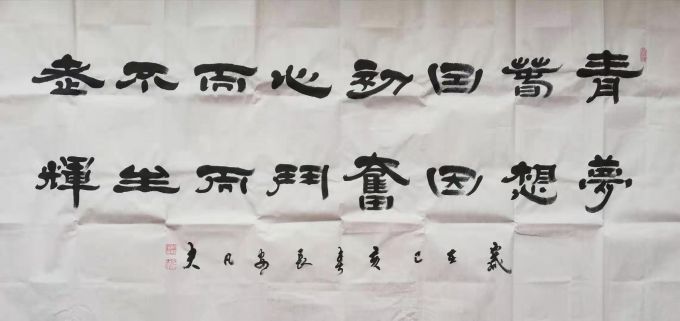 青春因初心而不老
夢想因奮鬥而生輝
歲在己亥春長安凡夫